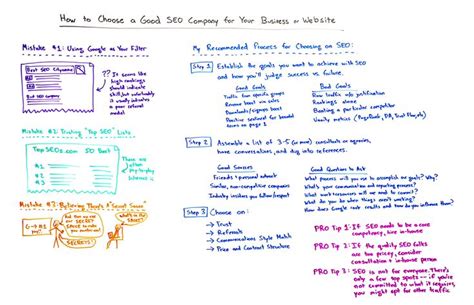 How to Choose a Good SEO Company for Your Business or Website
Mistake #1: Using Google as Your Filter
Best SEO Company
?? It seems like
high rankings
should indicate
skill, but
usually
is a referral
model.
Mistake #2: Trusting "Top SEO" Lists
TopSEOs.com 50 Best
#1
#2
#3
These are
just
pay-to-play
Mistake #3: Believing There's a "Secret Sauce"
SECRET
SAUCE
SECRETS!
what's in the
sauce?
My Recommended Process for Choosing an SEO:
Step 1 Establish the goals you want to achieve with SEO
and how you'll judge success vs. failure.
Good Goals
Bad Goals
Traffic for specific groups
Raw traffic w/o justification
Revenue boost via sales
Rankings alone
Downloads/signups boost
Beating a particular competitor
Positive sentiment for branded
terms on page 1
Vanity metrics (PageRank, DA,
Step 2 Assemble a list of 3-5 (or more) consultants or agencies,
have conversations, and dig into references.
Good Sources
Good Questions to Ask
Friends + personal network
What process will you use to accomplish our goals? Why?
Similar, non-competitive companies
What's your communication and reporting process?
Industry insiders you follow/respect
What resources will we need to commit?
What do you do when things aren't working?
How does Google rank results and how do you influence them?
Step 3 Choose on:
→ Trust
→ Referrals
→ Communications Style Match
→ Price and Contract Structure
PRO Tip 1: If SEO needs to be a
core competency, hire in-house
PRO Tip 2: If the quality SEO folks
are too pricey, consider
consultation + in-house person
PRO TIP 3: SEO is not for everyone. There's
only a few top spots – if you're
not committed to what it requires,
you might opt for other traffic